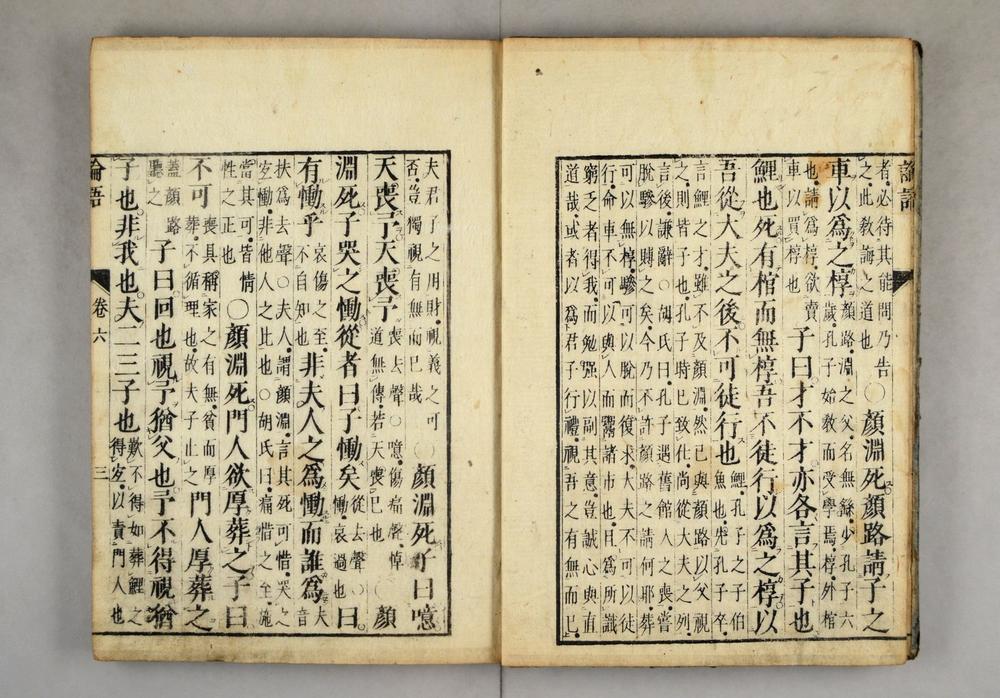 論語
者必待其能問乃告
之此教誨之道也
○顏淵死顏路請子之
車以爲之椁
顏路淵之父名無繇少孔子六
歲孔子始教而受學焉椁外棺
也請爲椁欲賣
車以買椁也
子曰才不才亦各言其子也
鯉也死有棺而無椁吾不徒行以爲之椁以
吾從大夫之後不可徒行也
鯉孔子之子伯
魚也先孔子卒
言鯉之才雖不及顏淵然已與顏路以父視
之則皆子也孔子時已致仕尚從大夫之列
言後謙辭○胡氏曰孔子遇舊館人之喪嘗
脫驂以賻之矣今乃不許顏路之請何耶葬
可以無椁驂可以脫而復求大夫不可以徒
行命車不可以與人而鬻諸市也且爲所識
窮乏者得我而勉强以副其意豈誠心與直
道哉或者以爲君子行禮視吾之有無而已
夫君子之用財視義之可
否豈獨視有無而已哉
○顏淵死子曰噫
天喪予天喪予
喪去聲○噫傷痛聲悼
道無傳若天喪已也
○顏
淵死子哭之慟從者曰子慟矣
從去聲○
慟哀過也
曰
有慟乎
哀傷之至
不自知也
非夫人之爲慟而誰爲
夫
音
扶爲去聲○夫人謂顏淵言其死可惜哭之
宐慟非他人之比也○胡氏曰痛惜之至施
當其可皆情
性之正也
○顏淵死門人欲厚葬之子曰
不可
喪具稱家之有無貧而厚
葬不循理也故夫子止之
門人厚葬之
蓋顏路
聽之
子曰回也視予猶父也予不得視猶
子也非我也夫二三子也
歎不得如葬鯉之
得宐以責門人也
論語
卷六
三